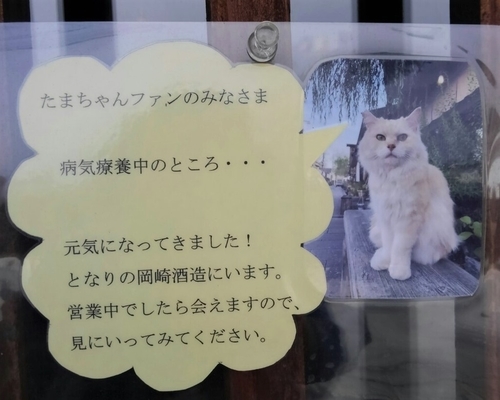 たまちゃんファンのみなさま
病気療養中のところ・・・
元気になってきました！
となりの岡崎酒造にいます。
営業中でしたら会えますので、
見にいってみてください。